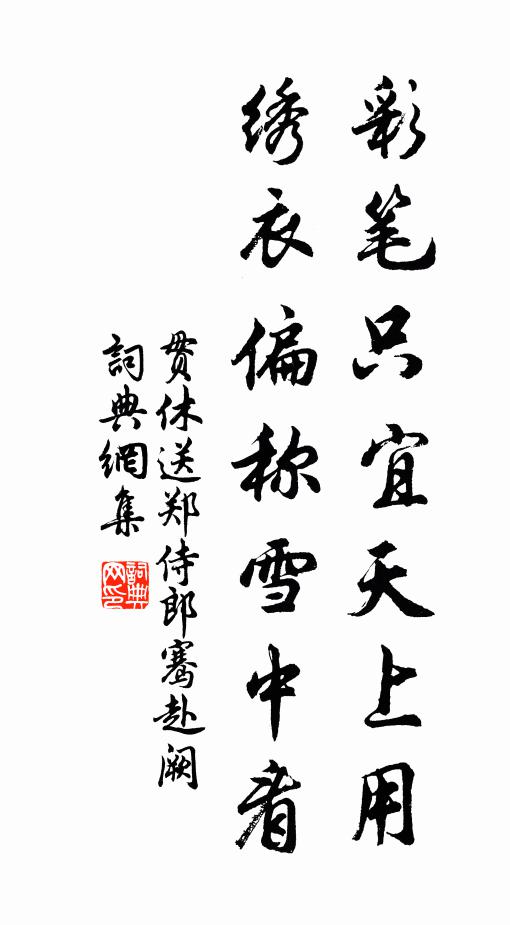 彩笔只宜天上用
绣衣偏称雪中看
贯休送郑侍郎骞赴阙
詞典網集
詞典网印